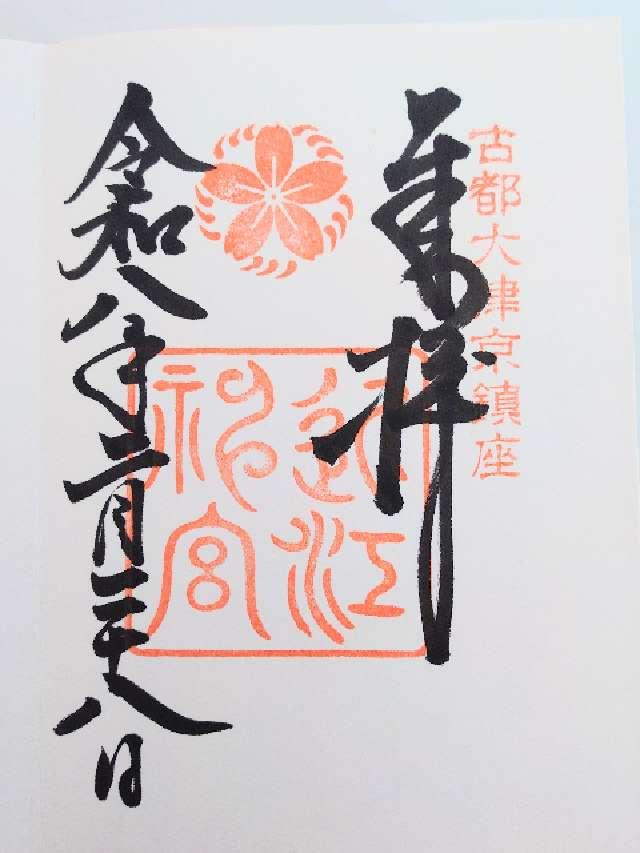 古都大津京鎮座
奉拝
近江
神宮
令和八年二月二十八日